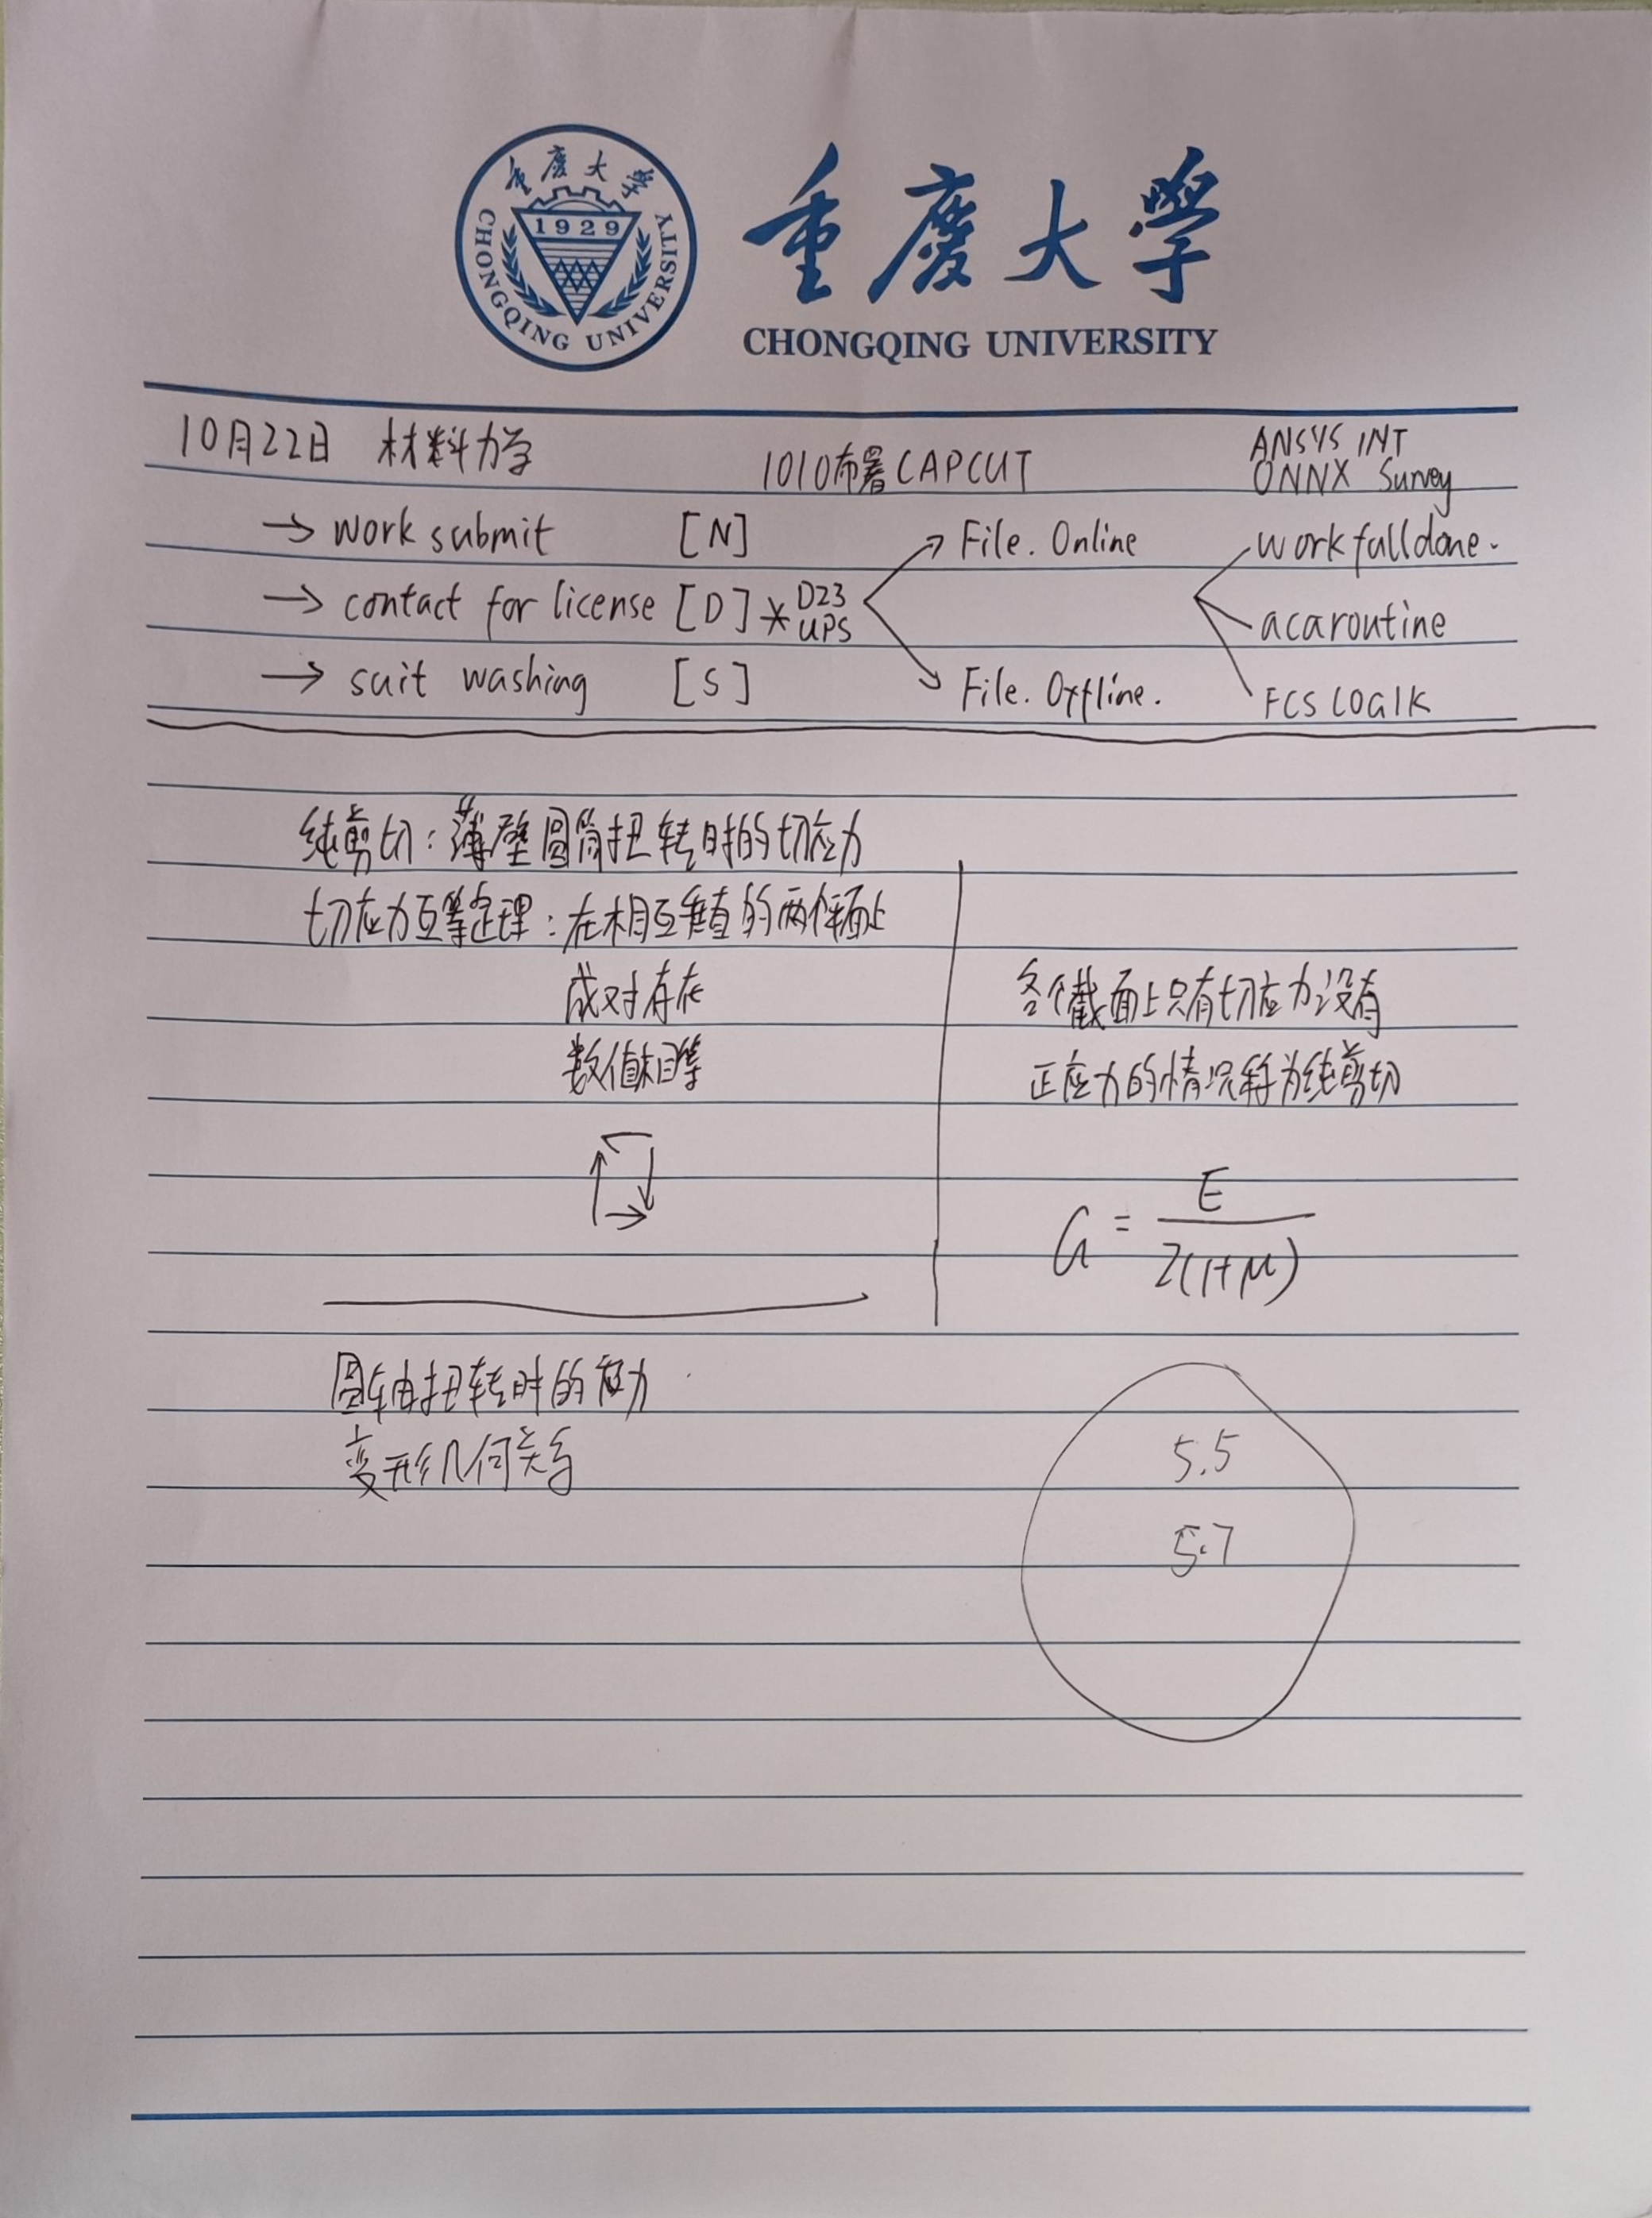 重慶大學
1929
CHONGQING UNIVERSITY
重慶大學
CHONGQING UNIVERSITY
10月22日 材料力学
1010布署CAPCUT
ANSYS INT
ONNX Survey
→ work submit [N]
→ contact for license [D] * D23
UPS
→ suit washing [S]
File. Online
File. Offline.
work fulldone.
acaroutine
FCS LOGIK
纯剪切：薄壁圆筒扭转时的切应力
切应力互等定理：在相互垂直的两个平面上
成对存在
数值相等
各个截面上只有切应力没有
正应力的情况称为纯剪切
G = E / 2(1+μ)
圆轴扭转时的应力
变形几何关系
5.5
5.7